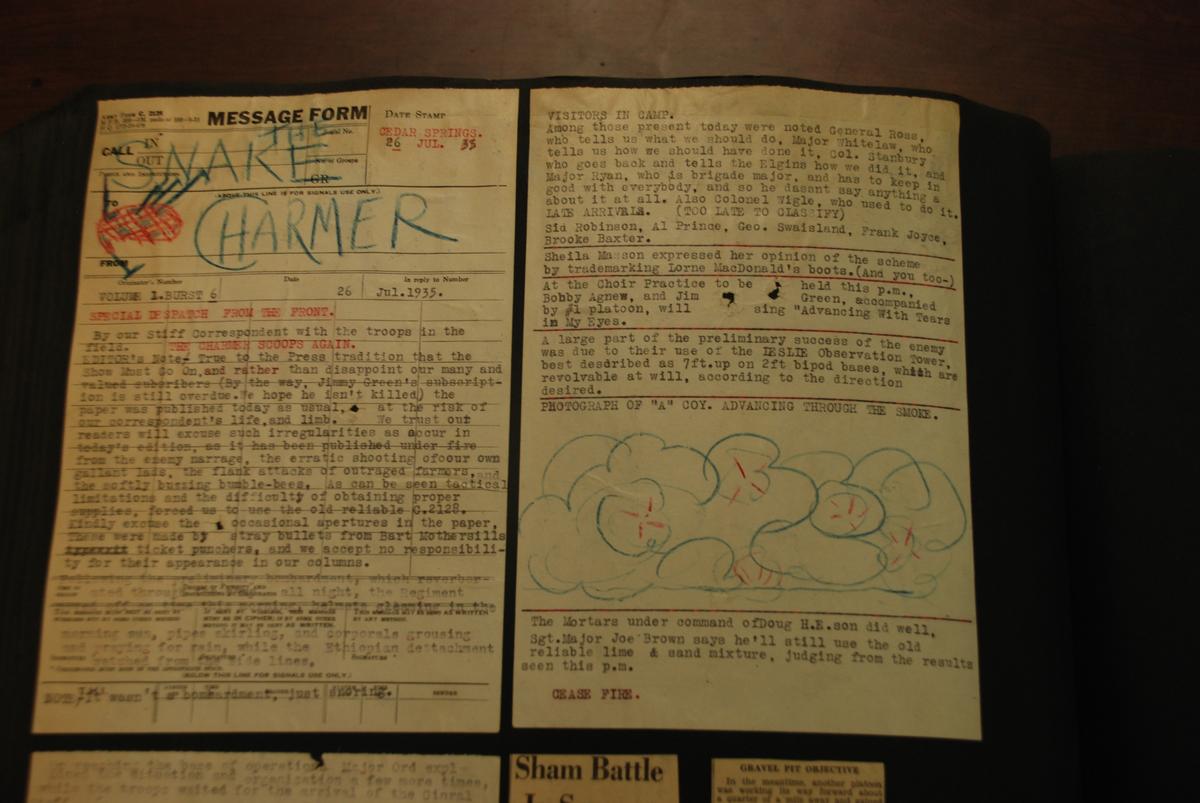 MESSAGE FORM
DATE STAMP
CALL
IN
OUT
CEDAR SPRINGS.
26 JUL. 35
GR
THE
SNAKE
(ABOVE THIS LINE IS FOR SIGNALS USE ONLY.)
TO
CHARMER
FROM
Originator's Number
Date
In reply to Number
VOLUME 1.BURST 6
26
Jul.1935.
SPECIAL DESPATCH FROM THE FRONT.
By our Stiff Correspondent with the troops in the
field. THE CHARMER SCOOPS AGAIN.
EDITOR's Note- True to the Press tradition that the
Show Must Go On,and rather than disappoint our many and
valued subsribers (By the way, Jimmy Green's subscript-
ion is still overdue.We hope he isn't killed) the
paper was published today as usual, at the risk of
our correspondent's life,and limb. We trust our
readers will excuse such irregularities as occur in
today's edition, as it has been published under fire
from the enemy marrage, the erratic shooting ofour own
gallant lads, the flank attacks of outraged farmers, and
the softly buzzing bumble-bees. As can be seen tactical
limitations and the difficulty of obtaining proper
supplies, forced us to use the old reliable C.2128.
Kindly excuse the occasional apertures in the paper,
These were made by stray bullets from Bart Mothersills
ticket punchers, and we accept no responsibili-
ty for their appearance in our columns.
bombardment, which reverber-
ated through all night, the Regiment
moved off on time this morning, helmets gleaming in the
morning sun, pipes skirling, and corporals grousing
and praying for rain, while the Ethiopian dettachment
watched from side lines.
(BELOW THIS LINE IS FOR SIGNALS USE ONLY.)
NOTE,It wasn't a bombardment, just snoring.
VISITORS IN CAMP.
Among those present today were noted General Ross,
who tells us what we should do, Major Whitelaw, who
tells us how we should have done it, Col. Stanbury
who goes back and tells the Elgins how we did it, and
Major Ryan, who is brigade major, and has to keep in
good with everybody, and so he dasnt say anything a
about it at all. Also Colonel Wigle, who used to do it.
LATE ARRIVALS. (TOO LATE TO CLASSIFY)
Sid Robinson, Al Prince, Geo. Swaisland, Frank Joyce,
Brooke Baxter.
Sheila Masson expressed her opinion of the scheme
by trademarking Lorne MacDonald's boots.(And you too-)
At the Choir Practice to be held this p.m.,
Bobby Agnew, and Jim Green, accompanied
by #1 platoon, will sing "Advancing With Tears
in My Eyes.
A large part of the preliminary success of the enemy
was due to their use of the IESLIE Observation Tower,
best desdribed as 7ft.up on 2ft bipod bases, which are
revolvable at will, according to the direction
desired.
PHOTOGRAPH OF "A" COY. ADVANCING THROUGH THE SMOKE.
The Mortars under command ofDoug H.E.son did well,
Sgt.Major Joe Brown says he'll still use the old
reliable lime & sand mixture, judging from the results
seen this p.m.
CEASE FIRE.
the base of operations Major Ord expl-
ained the situation and organization a few more times,
while the troops waited for the arrival of the Ginral
Sham Battle
GRAVEL PIT OBJECTIVE
In the meantime, another platoon
was working its way forward about
a quarter of a mile away and